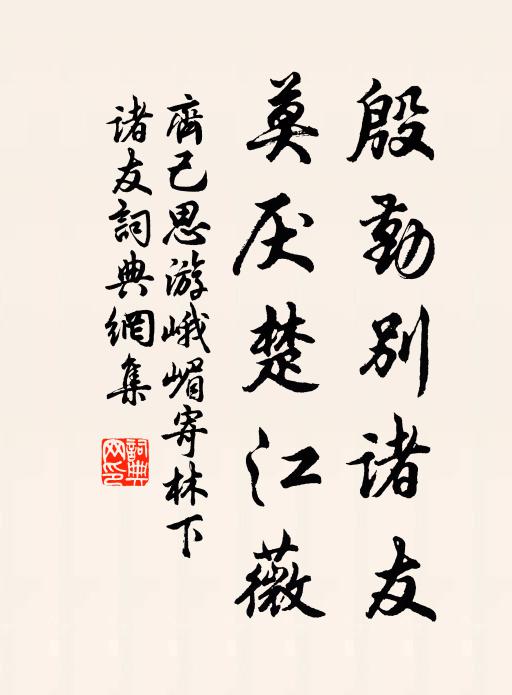 殷勤别诸友
莫厌楚江薇
齊己思游峨嵋寄林下
诸友詞典網集
詞典
网印